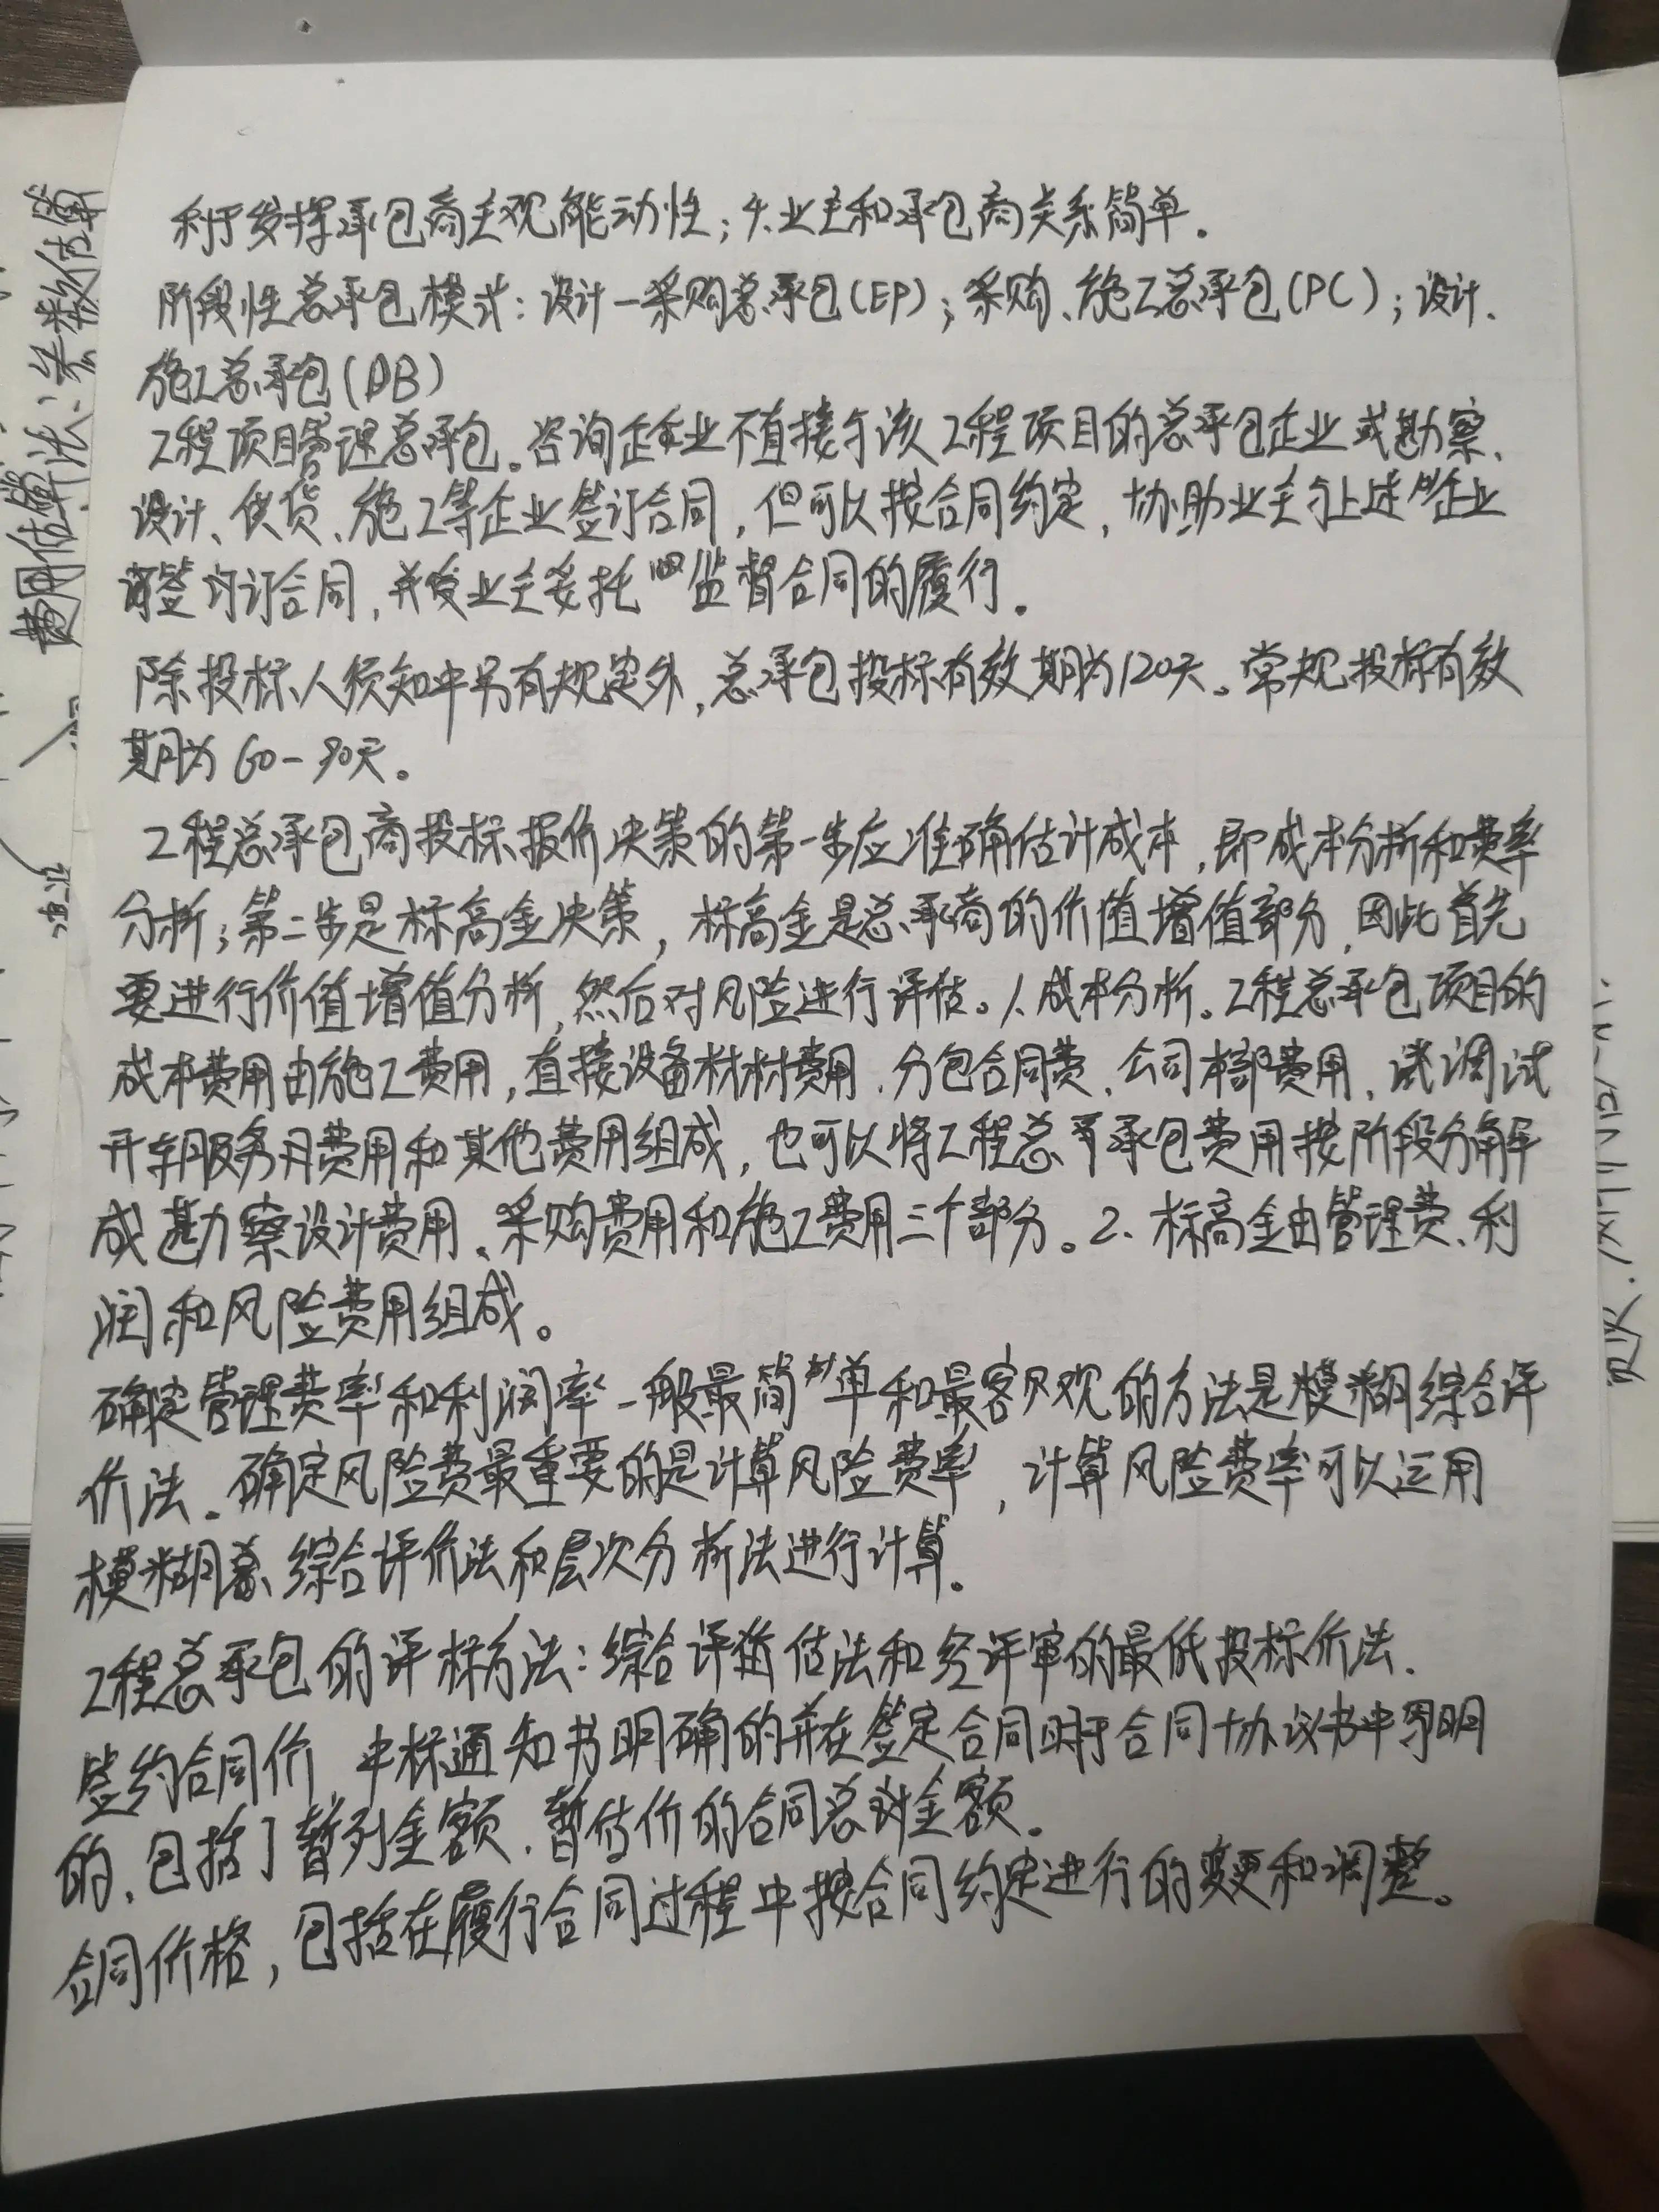 利于发挥承包商主观能动性；4.业主和承包商关系简单。
阶段性总承包模式：设计—采购总承包(EP)；采购、施工总承包(PC)；设计、
施工总承包(DB)
工程项目管理总承包。咨询企业不直接与该工程项目的总承包企业或勘察、
设计、供货、施工等企业签订合同，但可以按合同约定，协助业主与上述企业
签订合同，并受业主委托监督合同的履行。
除投标人须知中另有规定外，总承包投标有效期为120天。常规投标有效
期为60-90天。
工程总承包商投标报价决策的第一步应准确估计成本，即成本分析和费率
分析；第二步是标高金决策，标高金是总承商的价值增值部分，因此首先
要进行价值增值分析，然后对风险进行评估。1.成本分析。工程总承包项目的
成本费用由施工费用，直接设备材料费用、分包合同费、公司本部费用、调试
开车服务费用和其他费用组成，也可以将工程总承包费用按阶段分解
成勘察设计费用、采购费用和施工费用三个部分。2、标高金由管理费、利
润和风险费用组成。
确定管理费率和利润率一般最简单和最客观的方法是模糊综合评
价法。确定风险费最重要的是计算风险费率，计算风险费率可以运用
模糊综合评价法和层次分析法进行计算。
工程总承包的评标方法：综合评估法和经评审的最低投标价法.
签约合同价，中标通知书明确的并在签定合同时于合同协议书中写明
的、包括了暂列金额、暂估价的合同总金额。
合同价格，包括在履行合同过程中按合同约定进行的变更和调整。
费用估算法、系数估算